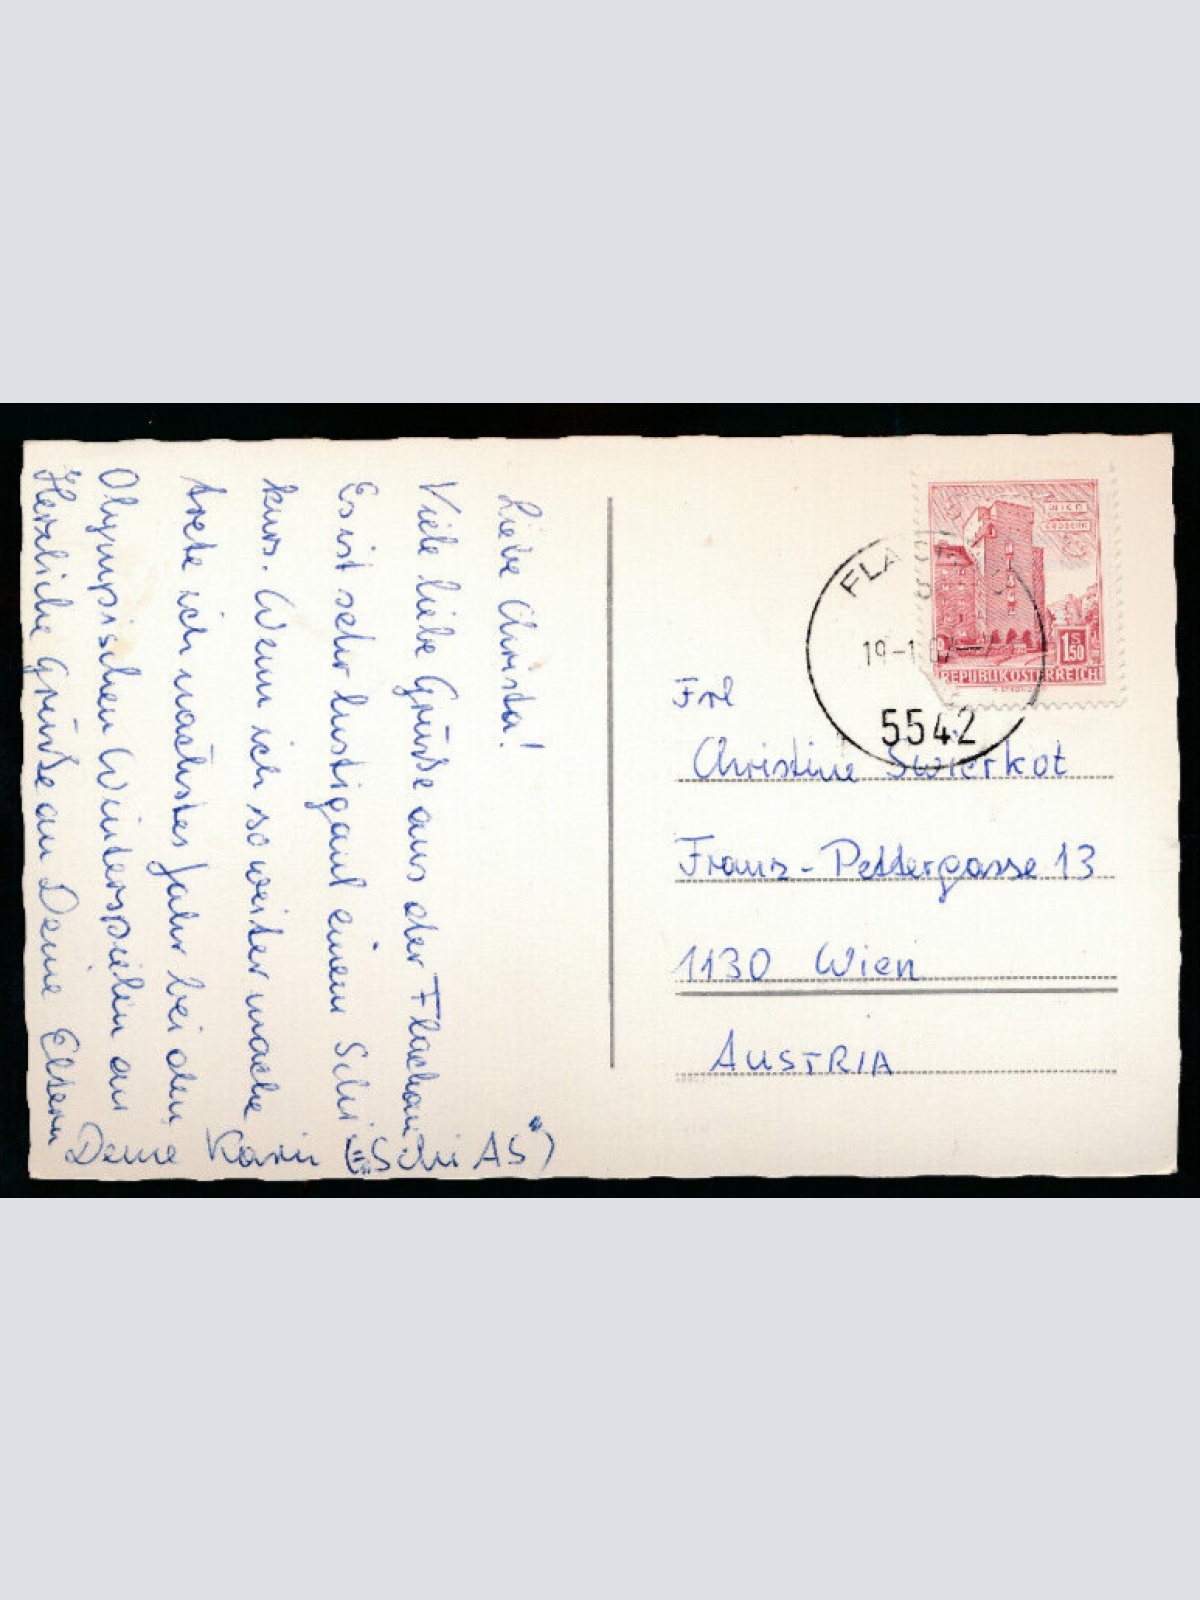 Liebe Christa!
Viele liebe Grüße aus der Flachau
Es ist sehr lustig auf einem Schi
kurs. Wenn ich so weiter mache
trete ich nächstes Jahr bei den
Olympischen Winterspielen an
Herzliche Grüße an Deine Eltern
Deine Karin (= „Schi AS")
FLACHAU
19-1
5542
1 S 50
REPUBLIK ÖSTERREICH
Frl
Christine Swierkot
Franz-Pettergasse 13
1130 Wien
AUSTRIA